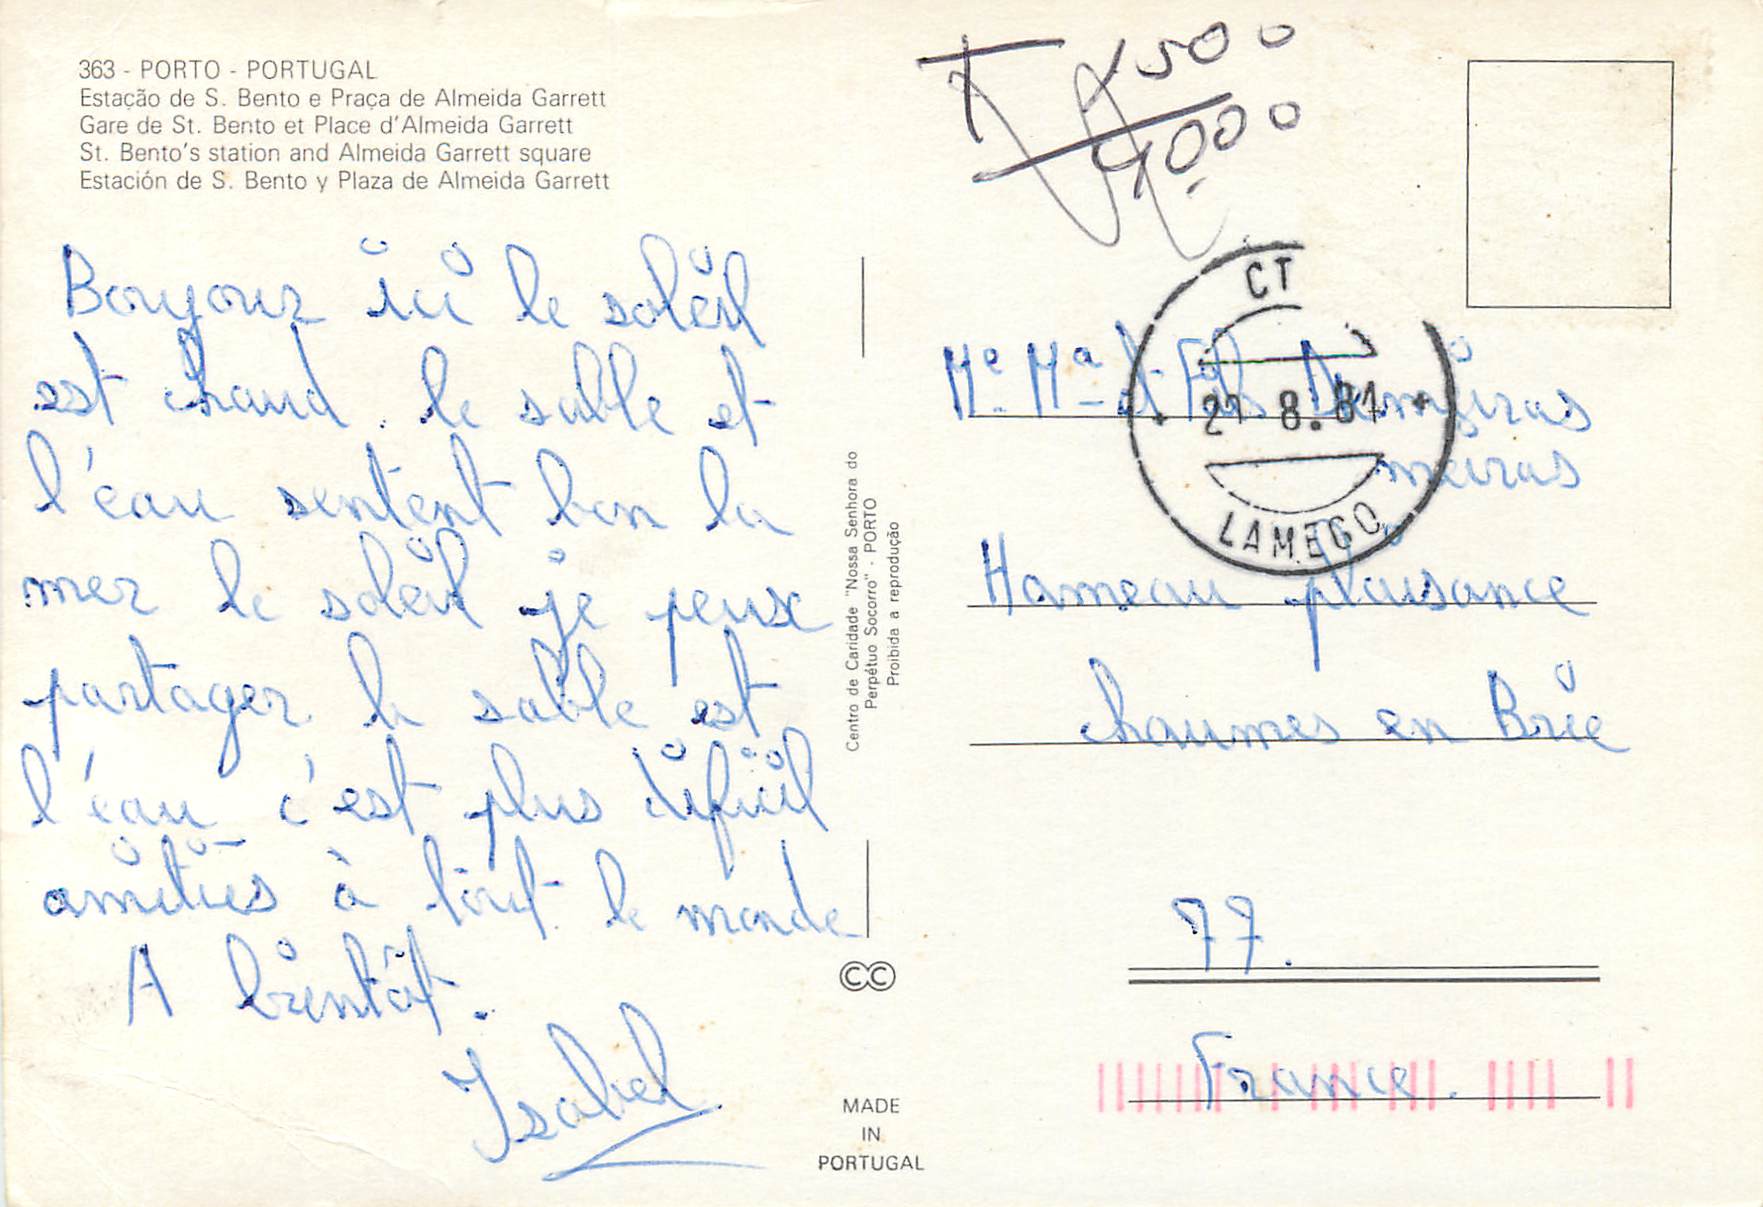 363 - PORTO - PORTUGAL
Estação de S. Bento e Praça de Almeida Garrett
Gare de St. Bento et Place d'Almeida Garrett
St. Bento's station and Almeida Garrett square
Estación de S. Bento y Plaza de Almeida Garrett
Bonjour ici le soleil
est chaud. le sable et
l'eau sentent bon la
mer le soleil je peux
partager le sable est
l'eau c'est plus dificil
amitiés à tout le monde
A bientôt.
Isabel
Centro de Caridade "Nossa Senhora do
Perpétuo Socorro" - PORTO
Proibida a reprodução
CC
MADE
IN
PORTUGAL
T 1500
4000
CT
21 8.81
LAMEGO
Me. Ma et Fils
meiras
Hameau plaisance
chaumes en Brie
77.
France.